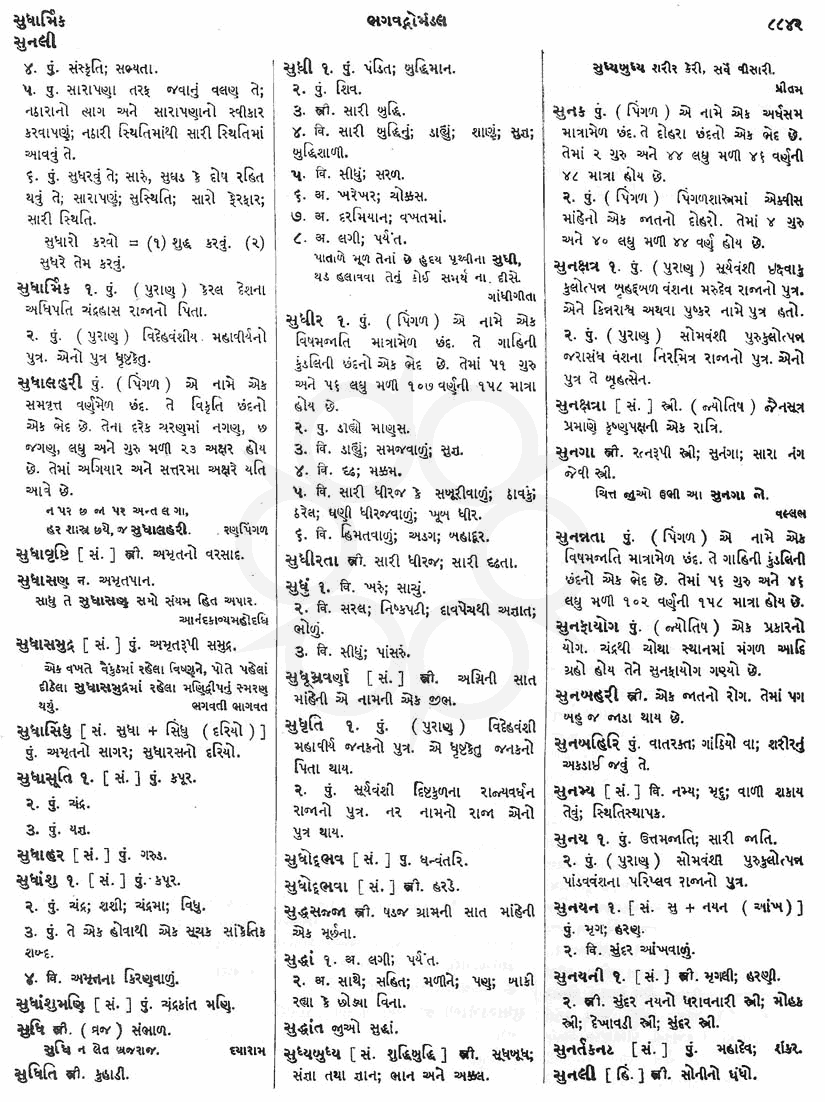 સુધાર્મિક
સુનલી
ભગવદ્ગોમંડલ
૮૮૪૨
૪. પું. સંસ્કૃતિ; સભ્યતા.
૫. પુ. સારાપણા તરફ જવાનું વલણ તે;
નઠારાનો ત્યાગ અને સારાપણાનો સ્વીકાર
કરવાપણું; નઠારી સ્થિતિમાંથી સારી સ્થિતિમાં
આવવું તે.
૬. પું. સુધરવું તે; સારું, સુઘડ કે દોષ રહિત
થવું તે; સારાપણું; સુસ્થિતિ; સારો ફેરફાર;
સારી સ્થિતિ.
સુધારો કરવો = (૧) શુદ્ધ કરવું. (૨)
સુધરે તેમ કરવું.
સુધાર્મિક ૧. પું. (પુરાણ) કેરલ દેશના
અધિપતિ ચંદ્રહાસ રાજાનો પિતા.
૨. પું. (પુરાણ) વિદેહવંશીય મહાવીર્યનો
પુત્ર. એનો પુત્ર ધૃષ્ટકેતુ.
સુધાલહરી પું. (પિંગળ) એ નામે એક
સમવૃત્ત વર્ણમેળ છંદ. તે વિકૃતિ છંદનો
એક ભેદ છે. તેના દરેક ચરણમાં નગણ, ૭
જગણ, લઘુ અને ગુરુ મળી ૨૩ અક્ષર હોય
છે. તેમાં અગિયાર અને સત્તરમા અક્ષરે યતિ
આવે છે.
ન પર છ જા પર અન્ત લ ગા,
હર શાસ્ત્ર છયે, જ સુધાલહરી. રણપિંગળ
સુધાવૃષ્ટિ [ સં. ] સ્ત્રી. અમૃતનો વરસાદ.
સુધાસણ ન. અમૃતપાન.
સાધુ તે સુધાસણ સમો સંયમ હિત અપાર.
આનંદકાવ્યમહોદધિ
સુધાસમુદ્ર [ સં. ] પું. અમૃતરૂપી સમુદ્ર.
એક વખતે વૈકુંઠમાં રહેલા વિષ્ણુને, પોતે પહેલાં
દીઠેલા સુધાસમુદ્રમાં રહેલા મણિદ્વીપનું સ્મરણ
થયું. ભગવતી ભાગવત
સુધાસિંધુ [ સં. સુધા + સિંધુ (દરિયો) ]
પું. અમૃતનો સાગર; સુધારસનો દરિયો.
સુધાસૂતિ ૧. [ સં. ] પું. કપૂર.
૨. પું. ચંદ્ર.
૩. પું. યજ્ઞ.
સુધાહર [ સં. ] પું. ગરુડ.
સુધાંશુ ૧. [ સં. ] પું. કપૂર.
૨. પું. ચંદ્ર; શશી; ચંદ્રમા; વિધુ.
૩. પું. તે એક હોવાથી એક સૂચક સાંકેતિક
શબ્દ.
૪. વિ. અમૃતના કિરણવાળું.
સુધાંશુમણિ [ સં. ] પું. ચંદ્રકાંત મણિ.
સુધિ સ્ત્રી. (વ્રજ) સંભાળ.
સુધિ ન લેત બ્રજરાજ. દયારામ
સુધિતિ સ્ત્રી. કુહાડી.
સુધી ૧. પું. પંડિત; બુદ્ધિમાન.
૨. પું. શિવ.
૩. સ્ત્રી. સારી બુદ્ધિ.
૪. વિ. સારી બુદ્ધિનું; ડાહ્યું; શાણું; સુજ્ઞ;
બુદ્ધિશાળી.
૫. વિ. સીધું; સરળ.
૬. અ. ખરેખર; ચોક્કસ.
૭. અ. દરમિયાન; વખતમાં.
૮. અ. લગી; પર્યંત.
પાતાળે મૂળ તેનાં છે હૃદય પૃથ્વીના સુધી,
થડ હલાવવા તેનું કોઈ સમર્થ ના દીસે.
ગાંધીગીતા
સુધીર ૧. પું. (પિંગળ) એ નામે એક
વિષમજાતિ માત્રામેળ છંદ. તે ગાહિની
કુંડલિની છંદનો એક ભેદ છે. તેમાં ૫૧ ગુરુ
અને ૫૬ લઘુ મળી ૧૦૭ વર્ણની ૧૫૮ માત્રા
હોય છે.
૨. પુ. ડાહ્યો માણસ.
૩. વિ. ડાહ્યું; સમજવાળું; સુજ્ઞ.
૪. વિ. દૃઢ; મક્કમ.
૫. વિ. સારી ધીરજ કે સબૂરીવાળું; ઠાવકું;
ઠરેલ; ઘણી ધીરજવાળું; ખૂબ ધીર.
૬. વિ. હિંમતવાળું; અડગ; બહાદૂર.
સુધીરતા સ્ત્રી. સારી ધીરજ; સારી દૃઢતા.
સુધું ૧. વિ. ખરું; સાચું.
૨. વિ. સરલ; નિષ્કપટી; દાવપેચથી અજ્ઞાત;
ભોળું.
૩. વિ. સીધું; પાંસરું.
સુધૂમ્રવર્ણા [ સં. ] સ્ત્રી. અગ્નિની સાત
માંહેની એ નામની એક જીભ.
સુધૃતિ ૧. પું. (પુરાણ) વિદેહવંશી
મહાવીર્ય જનકનો પુત્ર. એ ધૃષ્ટકેતુ જનકનો
પિતા થાય.
૨. પું. સૂર્યવંશી દિષ્ટકુળના રાજ્યવર્ધન
રાજાનો પુત્ર. નર નામનો રાજા એનો
પુત્ર થાય.
સુધોદ્ભવ [ સં. ] પુ. ધન્વંતરિ.
સુધોદ્ભવા [ સં. ] સ્ત્રી. હરડે.
સુદ્ધસજ્જા સ્ત્રી. ષડજ ગ્રામની સાત માંહેની
એક મૂર્છના.
સુદ્ધાં ૧. અ. લગી; પર્યંત.
૨. અ. સાથે; સહિત; મળીને; પણ; બાકી
રહ્યા કે છોડ્યા વિના.
સુદ્ધાંત જુઓ સુદ્ધાં.
સુધ્યબુધ્ય [ સં. શુદ્ધિબુદ્ધિ ] સ્ત્રી. સૂધબૂધ;
સંજ્ઞા તથા જ્ઞાન; ભાન અને અક્કલ.
સુધ્યબુધ્ય શરીર કેરી, સર્વે વીસારી.
પ્રીતમ
સુનક પું. (પિંગળ) એ નામે એક અર્ધસમ
માત્રામેળ છંદ. તે દોહરા છંદનો એક ભેદ છે.
તેમાં ૨ ગુરુ અને ૪૪ લઘુ મળી ૪૬ વર્ણની
૪૮ માત્રા હોય છે.
૨. પું. (પિંગળ) પિંગળશાસ્ત્રમાં એકવીસ
માંહેનો એક જાતનો દોહરો. તેમાં ૪ ગુરુ
અને ૪૦ લઘુ મળી ૪૪ વર્ણ હોય છે.
સુનક્ષત્ર ૧. પું. (પુરાણ) સૂર્યવંશી ઇક્ષ્વાકુ
કુલોત્પન્ન બૃહદ્બળ વંશના મરુદેવ રાજાનો પુત્ર.
એને કિન્નરાશ્વ અથવા પુષ્કર નામે પુત્ર હતો.
૨. પું. (પુરાણ) સોમવંશી પુરુકુલોત્પન્ન
જરાસંધ વંશના નિરમિત્ર રાજાનો પુત્ર. એનો
પુત્ર તે બૃહત્સેન.
સુનક્ષત્રા [ સં. ] સ્ત્રી. (જ્યોતિષ) જૈનસૂત્ર
પ્રમાણે કૃષ્ણપક્ષની એક રાત્રિ.
સુનગા સ્ત્રી. રત્નરૂપી સ્ત્રી; સુનંગા; સારા નંગ
જેવી સ્ત્રી.
ચિત્ત જુઓ હભી આ સુનગા લે.
વલ્લભ
સુનન્નતા પું. (પિંગળ) એ નામે એક
વિષમજાતિ માત્રામેળ છંદ. તે ગાહિની કુંડલિની
છંદનો એક ભેદ છે. તેમાં ૫૬ ગુરુ અને ૪૬
લઘુ મળી ૧૦૨ વર્ણની ૧૫૮ માત્રા હોય છે.
સુનફાયોગ પું. (જ્યોતિષ) એક પ્રકારનો
યોગ. ચંદ્રથી ચોથા સ્થાનમાં મંગળ આદિ
ગ્રહો હોય તેને સુનફાયોગ ગણ્યો છે.
સુનબહરી સ્ત્રી. એક જાતનો રોગ. તેમાં પગ
બહુ જ જાડા થાય છે.
સુનબહિરિ પું. વાતરક્ત; ગાંઠિયો વા; શરીરનું
અકડાઈ જવું તે.
સુનમ્ય [ સં. ] વિ. નમ્ય; મૃદુ; વાળી શકાય
તેવું; સ્થિતિસ્થાપક.
સુનય ૧. પું. ઉત્તમજાતિ; સારી જાતિ.
૨. પું. (પુરાણ) સોમવંશી પુરુકુલોત્પન્ન
પાંડવવંશના પરિપ્લવ રાજાનો પુત્ર.
સુનયન ૧. [ સં. સુ + નયન (આંખ) ]
પું. મૃગ; હરણ.
૨. વિ. સુંદર આંખવાળું.
સુનયની ૧. [ સં. ] સ્ત્રી. મૃગલી; હરણી.
૨. સ્ત્રી. સુંદર નયનો ધરાવનારી સ્ત્રી; મોહક
સ્ત્રી; દેખાવડી સ્ત્રી; સુંદર સ્ત્રી.
સુનર્તકનટ [ સં. ] પું. મહાદેવ; શંકર.
સુનલી [ હિં. ] સ્ત્રી. સોનીનો ધંધો.